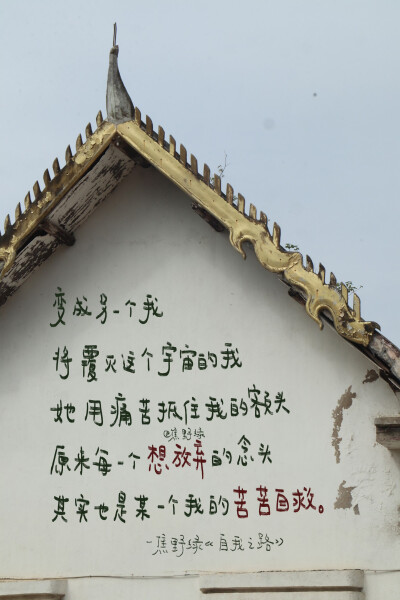 变成另一个我
将覆灭这个宇宙的我
她用痛苦抵住我的额头
@焦野绿
原来每一个想放弃的念头
其实也是某一个我的苦苦自救。
—焦野绿《自我之路》